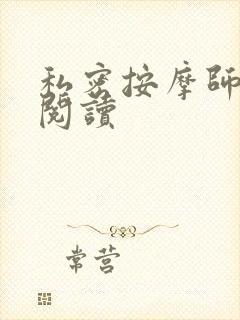 私密按摩師
閱讀
常营